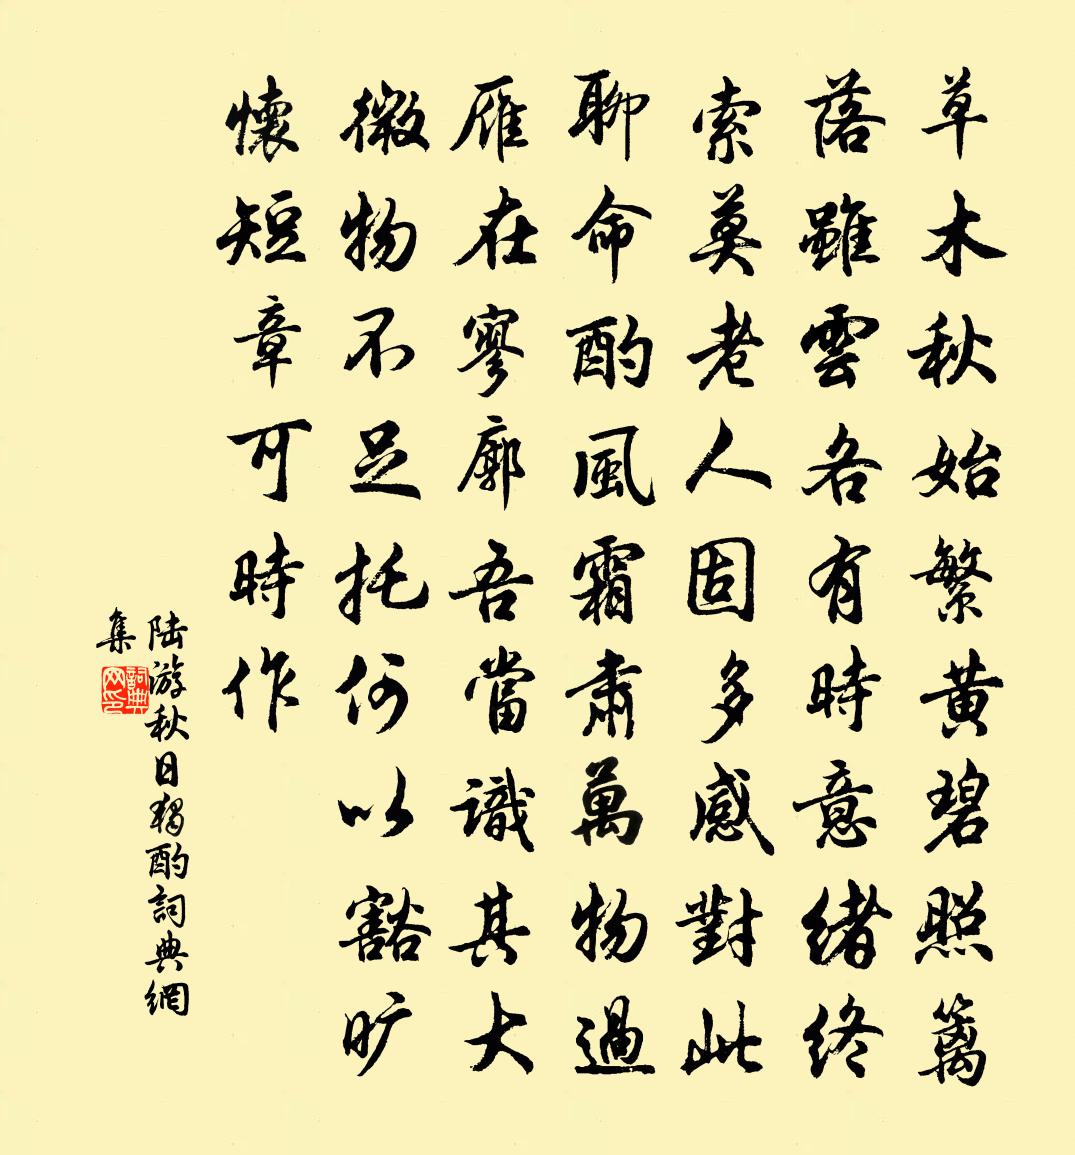 草木秋始繁黄碧照籬
落雖雲各有時意緒終
索莫老人固多感對此
聊命酌風霜肅萬物過
雁在寥廓吾當識其大
微物不足托何以豁旷
懷短章可時作
陆游秋日獨酌詞典網
集
詞典
网印